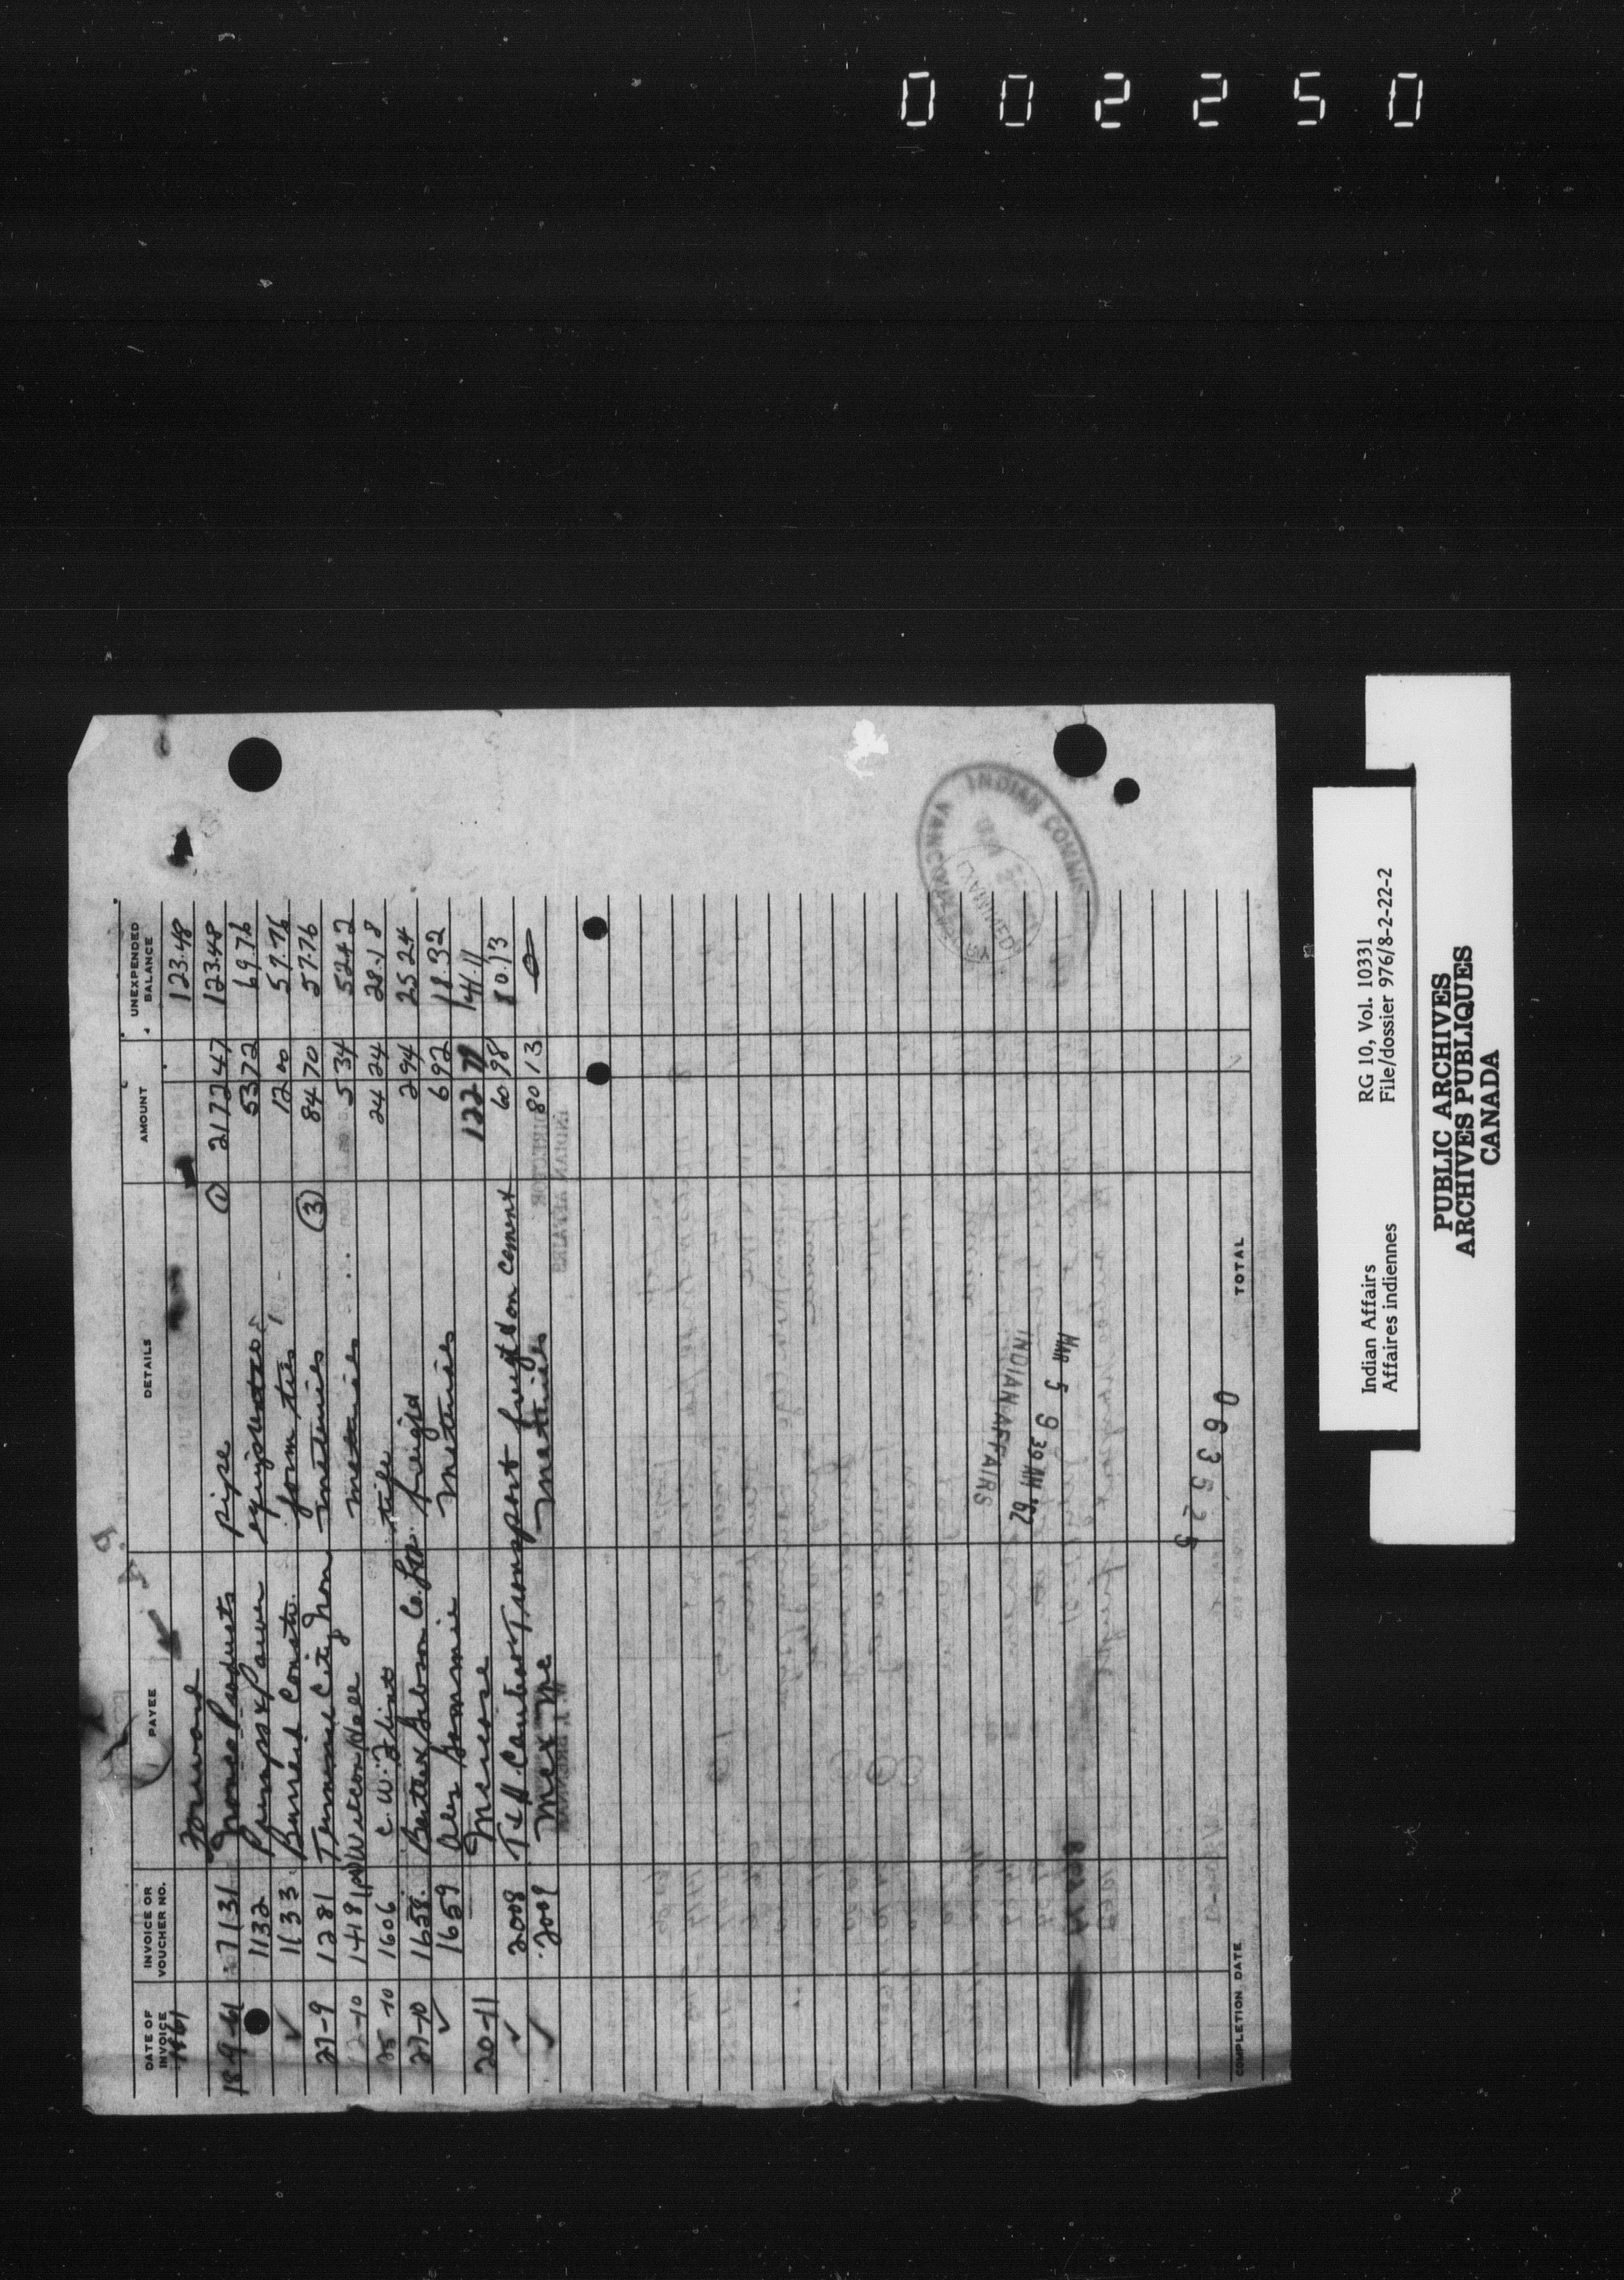 0 0 2 2 5 0
DATE OF INVOICE INVOICE OR VOUCHER NO. PAYEE DETAILS AMOUNT UNEXPENDED BALANCE
1961 Forward 123.48
18-9-61 1131 Products pipe ① 2172 47 123.48
1132 Pumps & Power 53 72 69.76
✓ 1133 Burrard Constr. form ties 12 00 57.76
27-9 1281 Terminal City Iron materials ③ 84 70 57.76
12-10 1481 Hall materials 5 34 52 42
25-10 1606 C. W. Flint tile 24 24 28.18
27-10 1658 Gibson Co. Ltd. freight 2 94 25 24
✓ 1659 materials 6 92 18.32
20-11 122 79 141.11
✓ 2008 Ted Transport freight on cement 60 98 80.13
✓ 2009 Mc & Mc materials 80 13 0
INDIAN COMMIS
VANCOUVER
EXAMINED
INDIAN AFFAIRS
MAR 5 9 39 AM '62
0 6 3 5 2 5
COMPLETION DATE TOTAL
Indian Affairs RG 10, Vol. 10331
Affaires indiennes File/dossier 976/8-2-22-2
PUBLIC ARCHIVES
ARCHIVES PUBLIQUES
CANADA